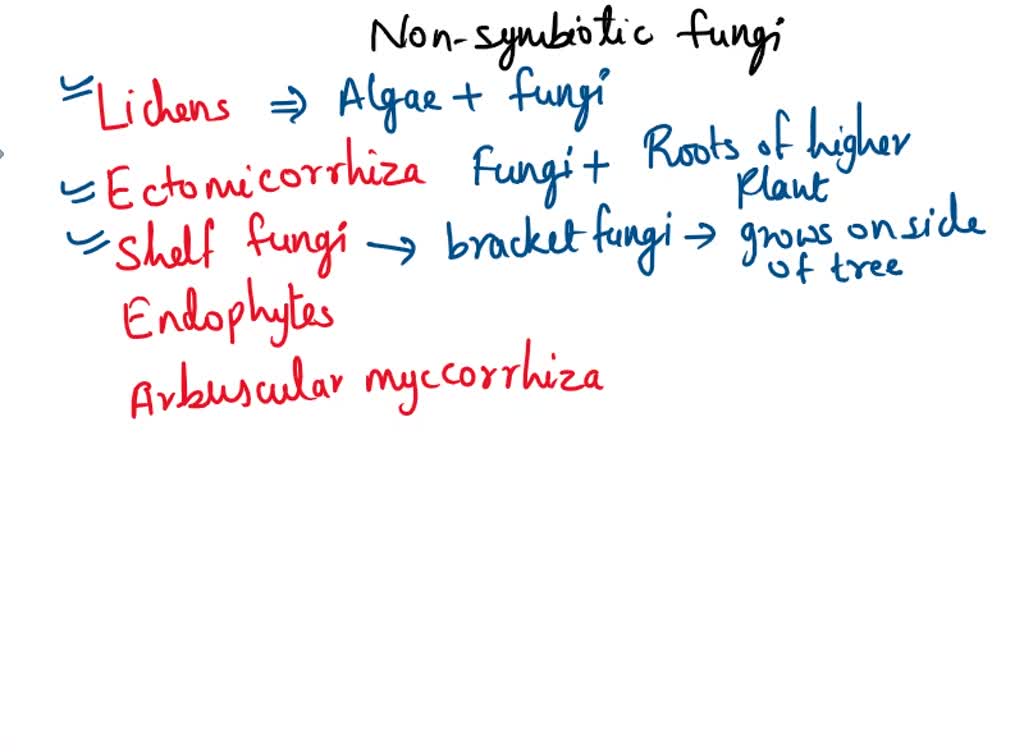 Non-symbiotic fungi
Lichens ⇒ Algae + fungi
Ectomicorrhiza Fungi + Roots of higher
plant
Shelf fungi → bracket fungi → grows on side
of tree
Endophytes
Arbuscular myccorrhiza